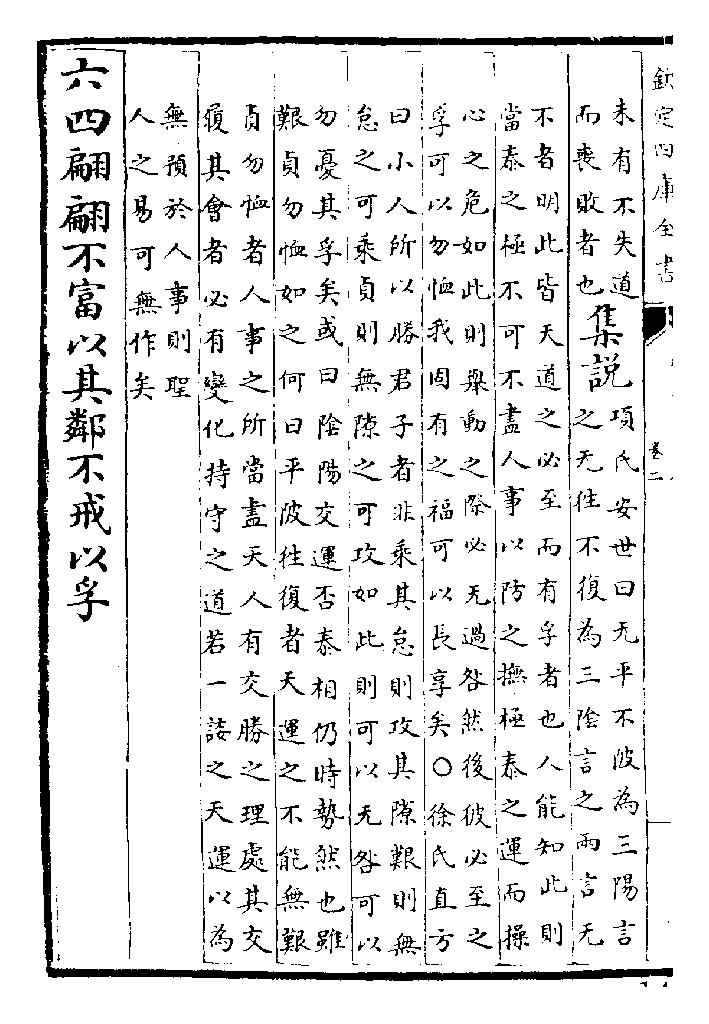 欽定四庫全書 卷二
未有不失道
而喪敗者也
集説
項氏安世曰无平不陂為三陽言
之无往不復為三陰言之兩言无
不者明此皆天道之必至而有孚者也人能知此則
當泰之極不可不盡人事以防之撫極泰之運而操
心之危如此則舉動之際必无過咎然後彼必至之
孚可以勿恤我固有之福可以長享矣〇徐氏直方
曰小人所以勝君子者非乘其怠則攻其隙艱則無
怠之可乘貞則無隙之可攻如此則可以无咎可以
勿憂其孚矣或曰陰陽交運否泰相仍時勢然也雖
艱貞勿恤如之何曰平陂往復者天運之不能無艱
貞勿恤者人事之所當盡天人有交勝之理處其交
履其會者必有變化持守之道若一諉之天運以為
無預於人事則聖
人之易可無作矣
六四翩翩不富以其鄰不戒以孚